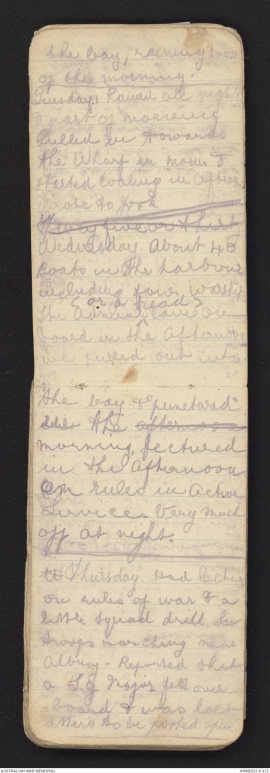 the bay, raining most
of the morning.
Tuesday: Rained all night
& part of morning
pulled in towards
the Wharf in morn &
started coaling in after
wrote to Jock
Wednesday About 40
Boats in the harbour
including four Warships
(or a head)
The Admiral came on
board in the afternoon
we pulled out into
the bay & "punctured"
the afternoon
morning, lectured
in the afternoon
on rules in Active
Service. Very much
off at night.
Thursday Had lecture
on rules of war & a
little squad drill. Saw
troops marching near
Albany. Reported that
a S.G Major fell over
board & was lost
letters to be posted open
AUSTRALIAN WAR MEMORIAL